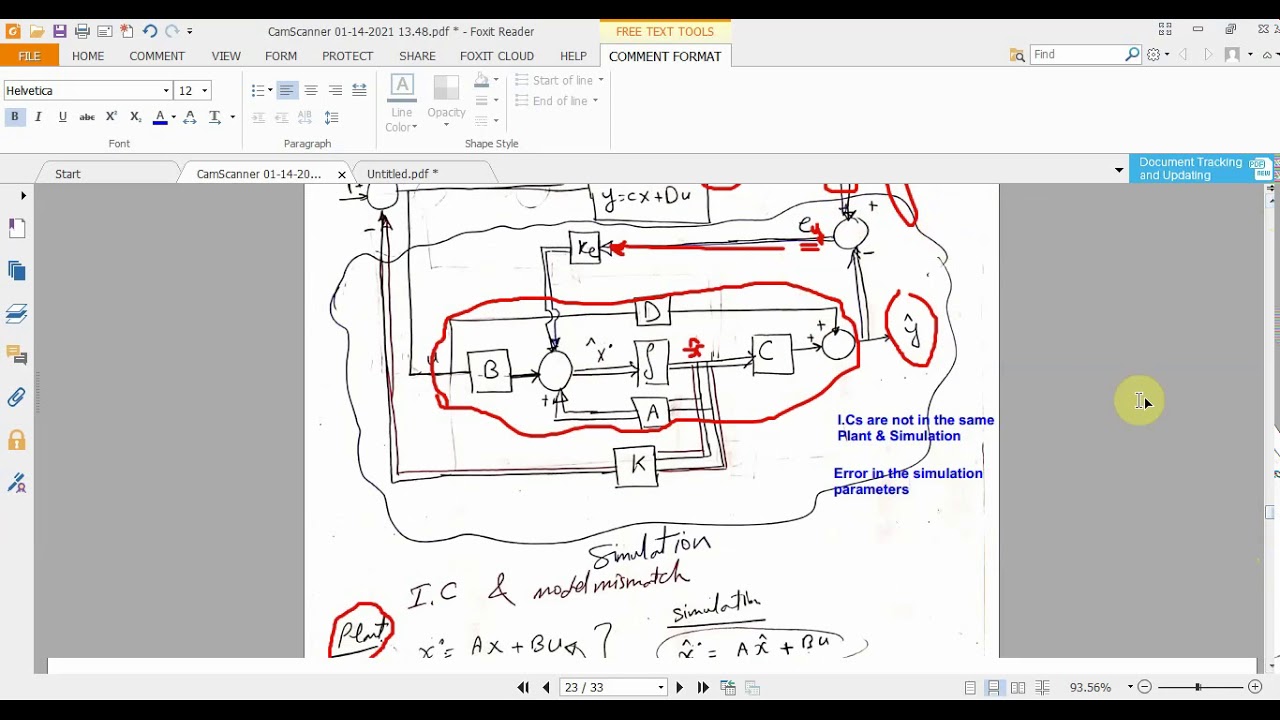 CamScanner 01-14-2021 13.48.pdf * - Foxit Reader
FREE TEXT TOOLS
FILE HOME COMMENT VIEW FORM PROTECT SHARE FOXIT CLOUD HELP COMMENT FORMAT
Find
Helvetica 12
Start of line
End of line
Line Color
Opacity
B I U abc X² X₂ A T
Font Paragraph Shape Style
Start
CamScanner 01-14-20... x
Untitled.pdf *
Document Tracking
and Updating
y=cx+Du
+
-
Ke
ey
+
-
D
u
B
x̂˙
∫
x̂
C
+
+
ŷ
+
A
K
I.Cs are not in the same
Plant & Simulation
Error in the simulation
parameters
Simulation
I.C & model mismatch
Plant
simulation
x˙ = Ax + Bu
x̂˙ = Ax̂ + Bu
23 / 33
93.56%